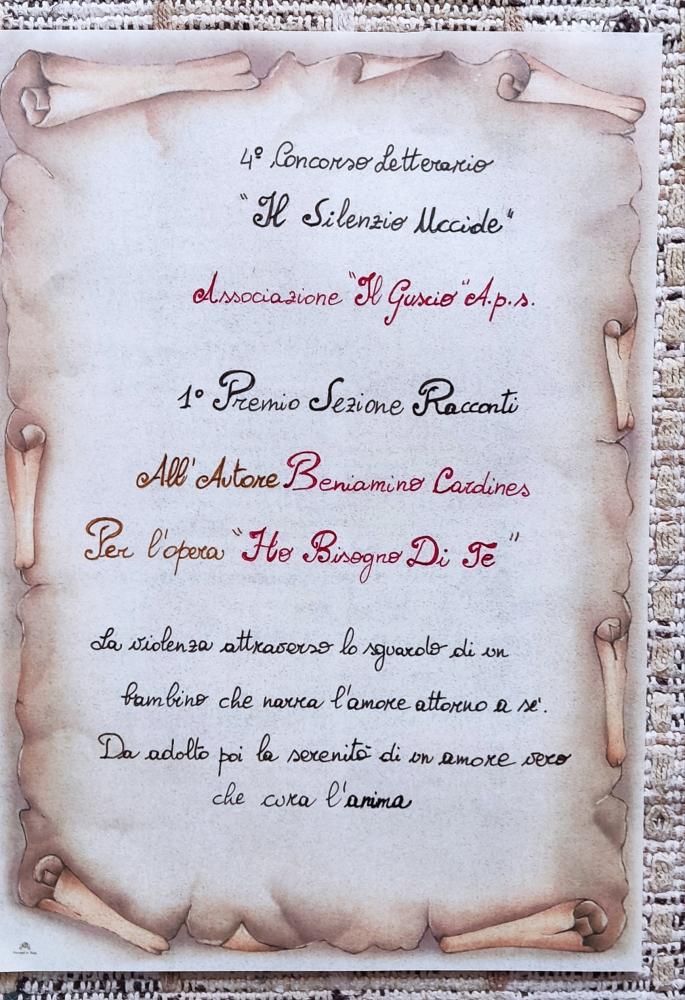 4º Concorso Letterario
"Il Silenzio Uccide"
Associazione "Il Guscio" A.p.s.
1º Premio Sezione Racconti
All'Autore Beniamino Cardines
Per l'opera "Ho Bisogno Di Te"
La violenza attraverso lo sguardo di un
bambino che narra l'amore attorno a sé.
Da adulto poi la serenità di un amore vero
che cura l'anima